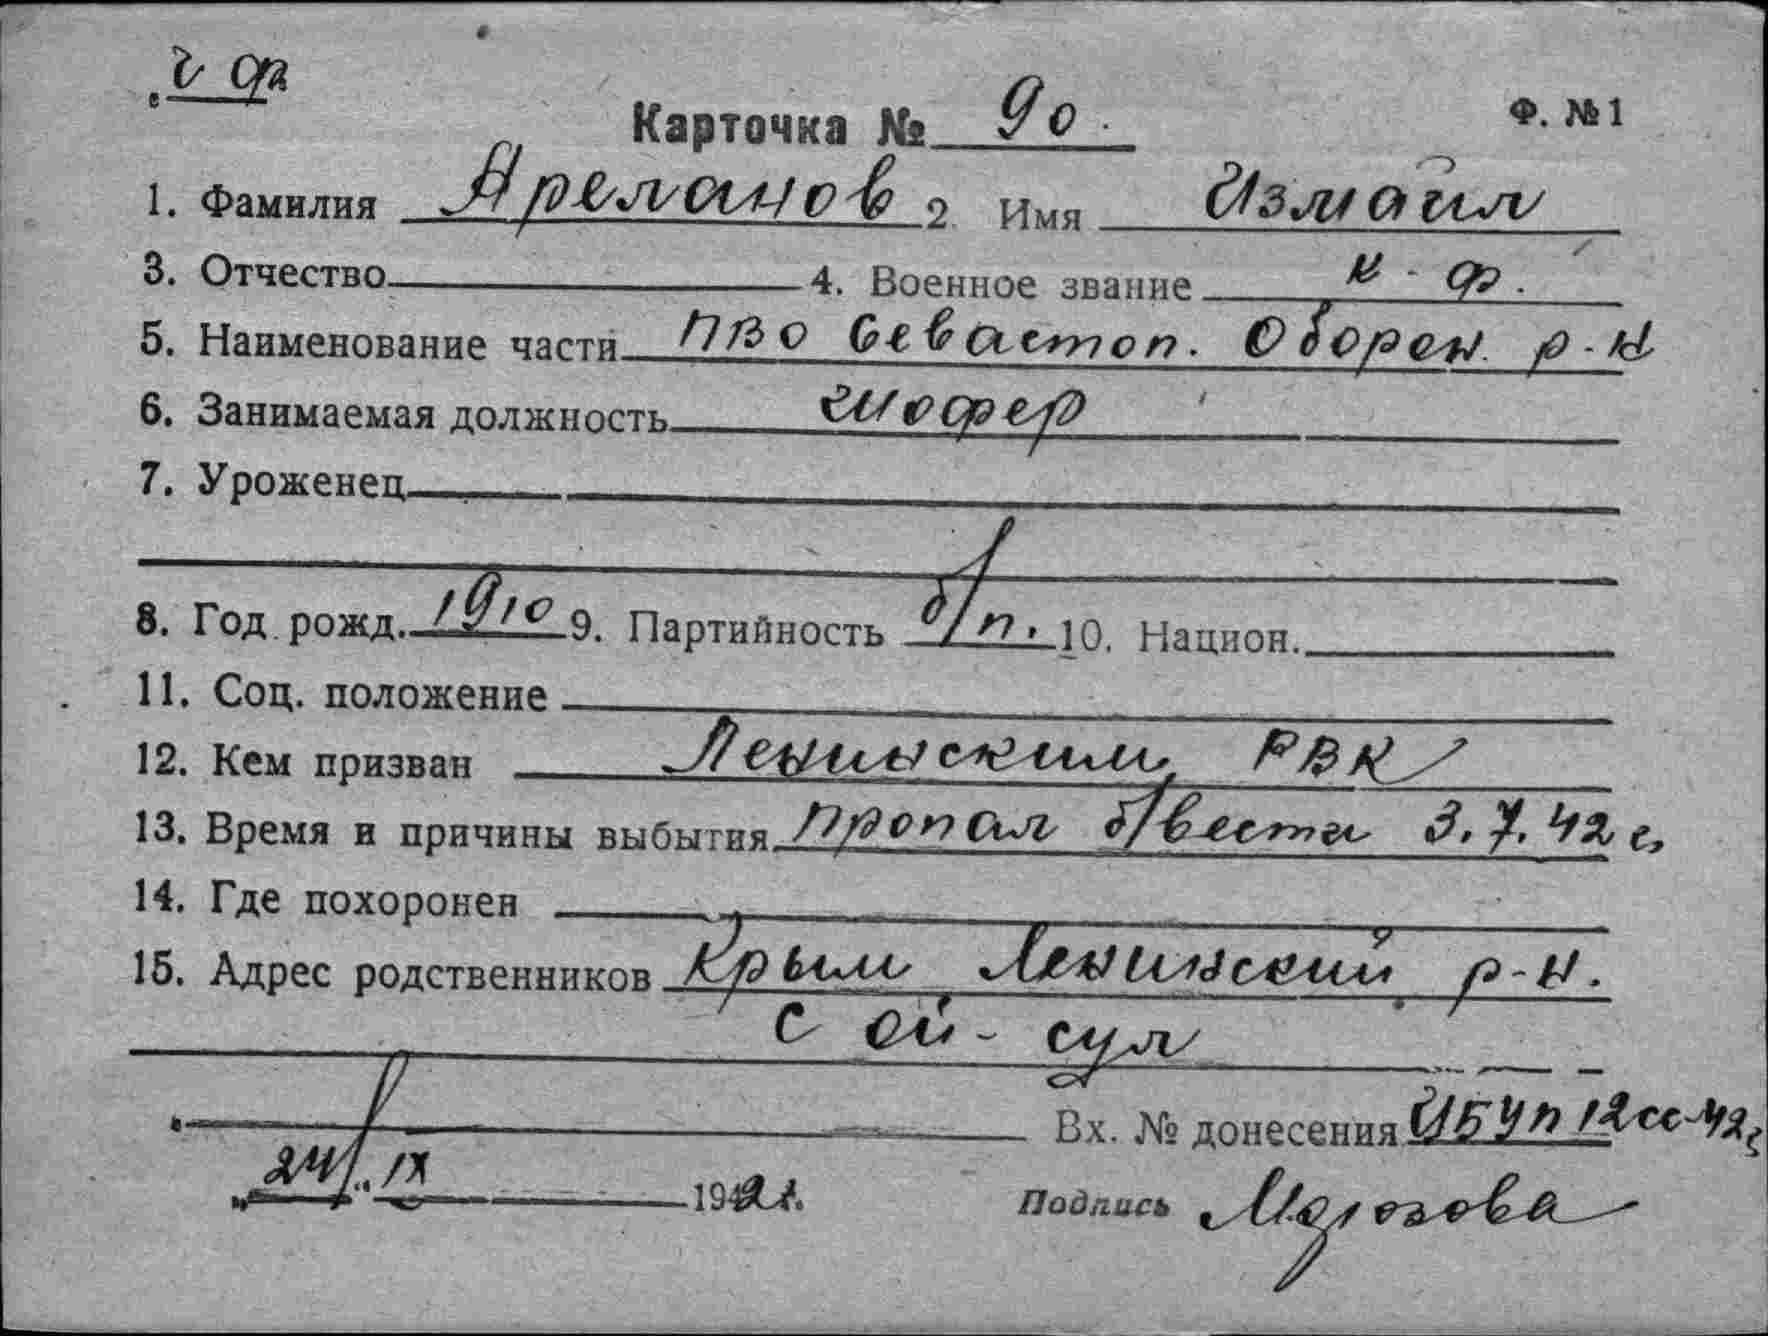 ч ф
Карточка № 90. Ф. № 1
1. Фамилия Ареланов 2. Имя Измаил
3. Отчество 4. Военное звание к-ф.
5. Наименование части ПВО Севастоп. Оборон. р-н
6. Занимаемая должность шофер
7. Уроженец
8. Год рожд. 1910 9. Партийность б/п. 10. Национ.
11. Соц. положение
12. Кем призван Ленинским РВК
13. Время и причины выбытия пропал б/вести 3.7.42 г.
14. Где похоронен
15. Адрес родственников Крым Ленинский р-н.
с Ой-сул
Вх. № донесения 12сс-42г
„24“ IX 1942г. Подпись Морозова